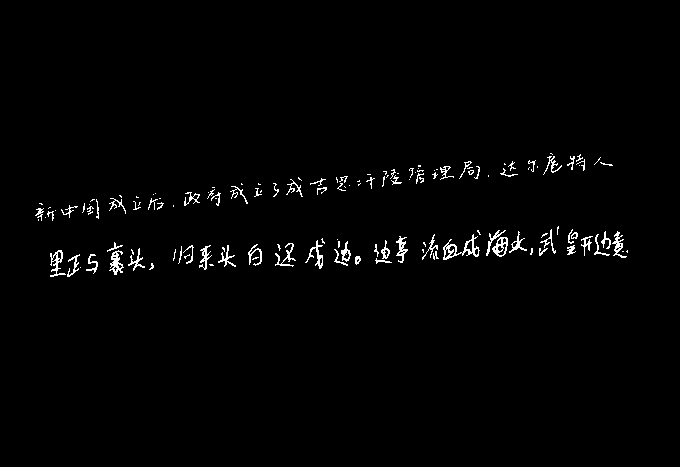 新中国成立后,政府成立了成吉思汗陵管理局,达尔扈特人
里正与裹头,归来头白还戍边。边亭流血成海水,武皇开边意